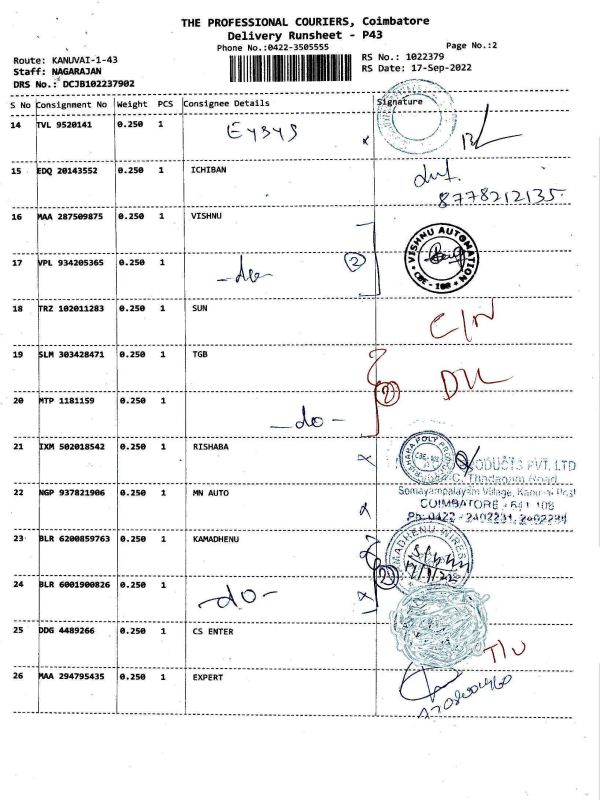 THE PROFESSIONAL COURIERS, Coimbatore
Delivery Runsheet - P43
Phone No.:0422-3505555
Page No.:2
Route: KANUVAI-1-43
RS No.: 1022379
Staff: NAGARAJAN
RS Date: 17-Sep-2022
DRS No.: DCJB102237902
S No Consignment No Weight PCS Consignee Details Signature
14 TVL 9520141 0.250 1
15 EDQ 20143552 0.250 1 ICHIBAN
8778212135
16 MAA 287509875 0.250 1 VISHNU
VISHNU AUTOMATION
CBE - 108
17 VPL 934205365 0.250 1 -do- 2
18 TRZ 102011283 0.250 1 SUN
19 SLM 303428471 0.250 1 TGB
20 MTP 1181159 0.250 1 -do- 2
21 IXM 502018542 0.250 1 RISHABA
ODUCTS PVT. LTD
Thadagam Road
22 NGP 937821906 0.250 1 MN AUTO
Somayampalayam Village, Kanuvai Post
COIMBATORE - 641 108
23 BLR 6200859763 0.250 1 KAMADHENU
24 BLR 6001900826 0.250 1 -do- 2
25 DDG 4489266 0.250 1 CS ENTER
26 MAA 294795435 0.250 1 EXPERT